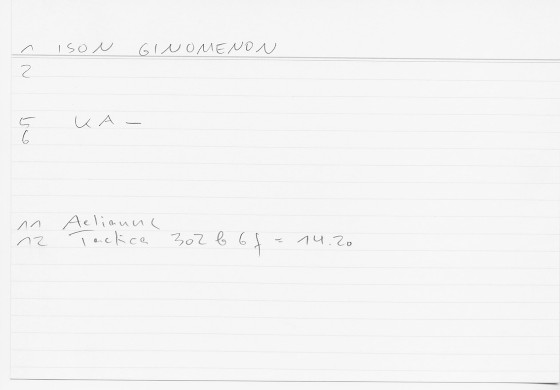 1 ISON GINOMENON
2
5 KA -
6
11 Aelianus
12 Tactica 302 b 6 f = 14.20